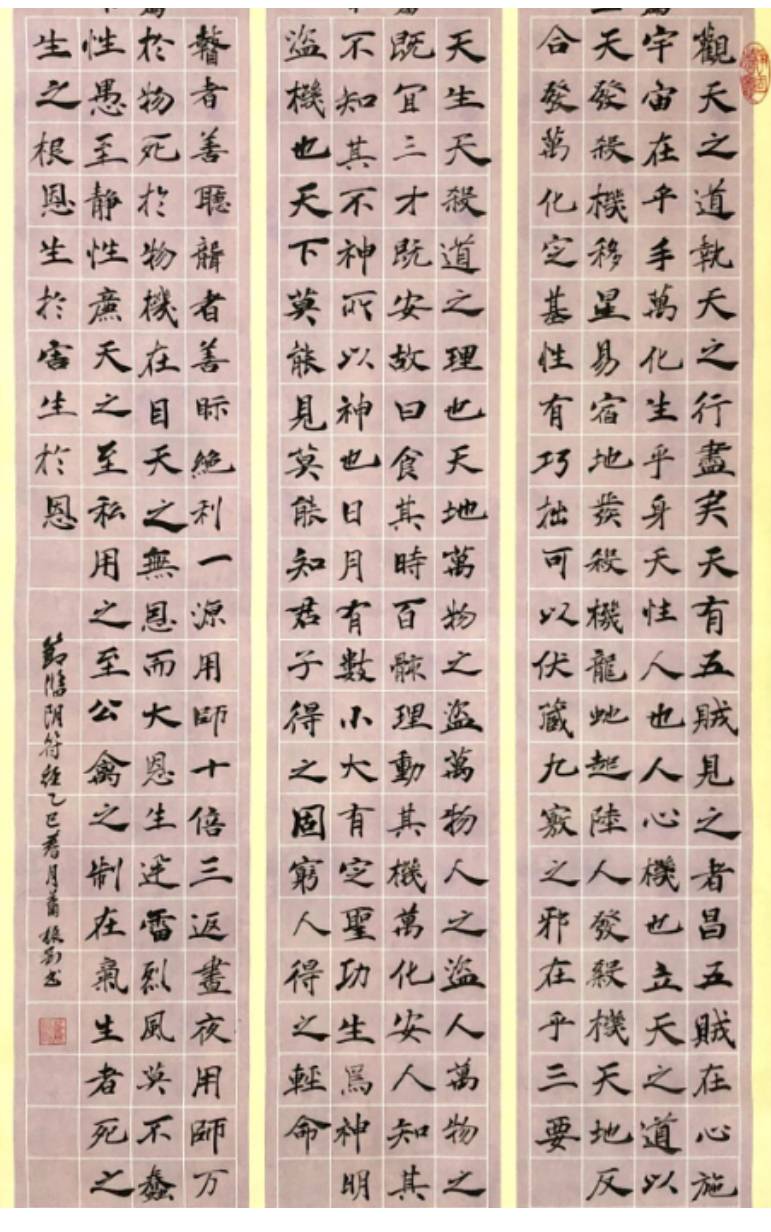 觀天之道執天之行盡矣天有五賊見之者昌五賊在心施
宇宙在乎手萬化生乎身天性人也人心機也立天之道以
天發殺機移星易宿地發殺機龍虵起陸人發殺機天地反
合發萬化定基性有巧拙可以伏藏九竅之邪在乎三要
天生天殺道之理也天地萬物之盜萬物人之盜人萬物之
既宜三才既安故曰食其時百骸理動其機萬化安人知其
不知其不神所以神也日月有數小大有定聖功生焉神明
盜機也天下莫能見莫能知君子得之固窮人得之輕命
瞽者善聽聾者善眎絕利一源用師十倍三返晝夜用師万
於物死於物機在目天之無恩而大恩生迅雷烈風莫不蠢
性愚至静性廉天之至私用之至公禽之制在氣生者死之
生之根恩生於害生於恩
節臨阴符經乙巳春月蕭书